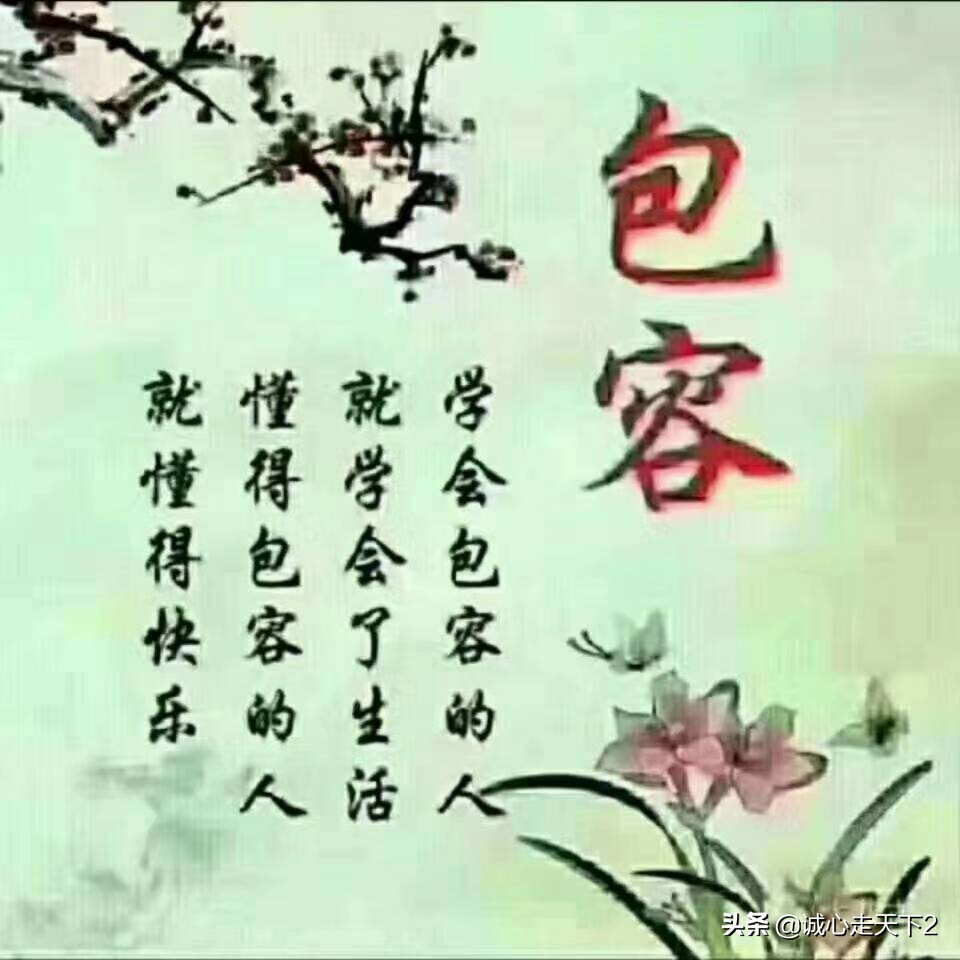 包容
学会包容的人
就学会了生活
懂得包容的人
就懂得快乐
头条 @诚心走天下2